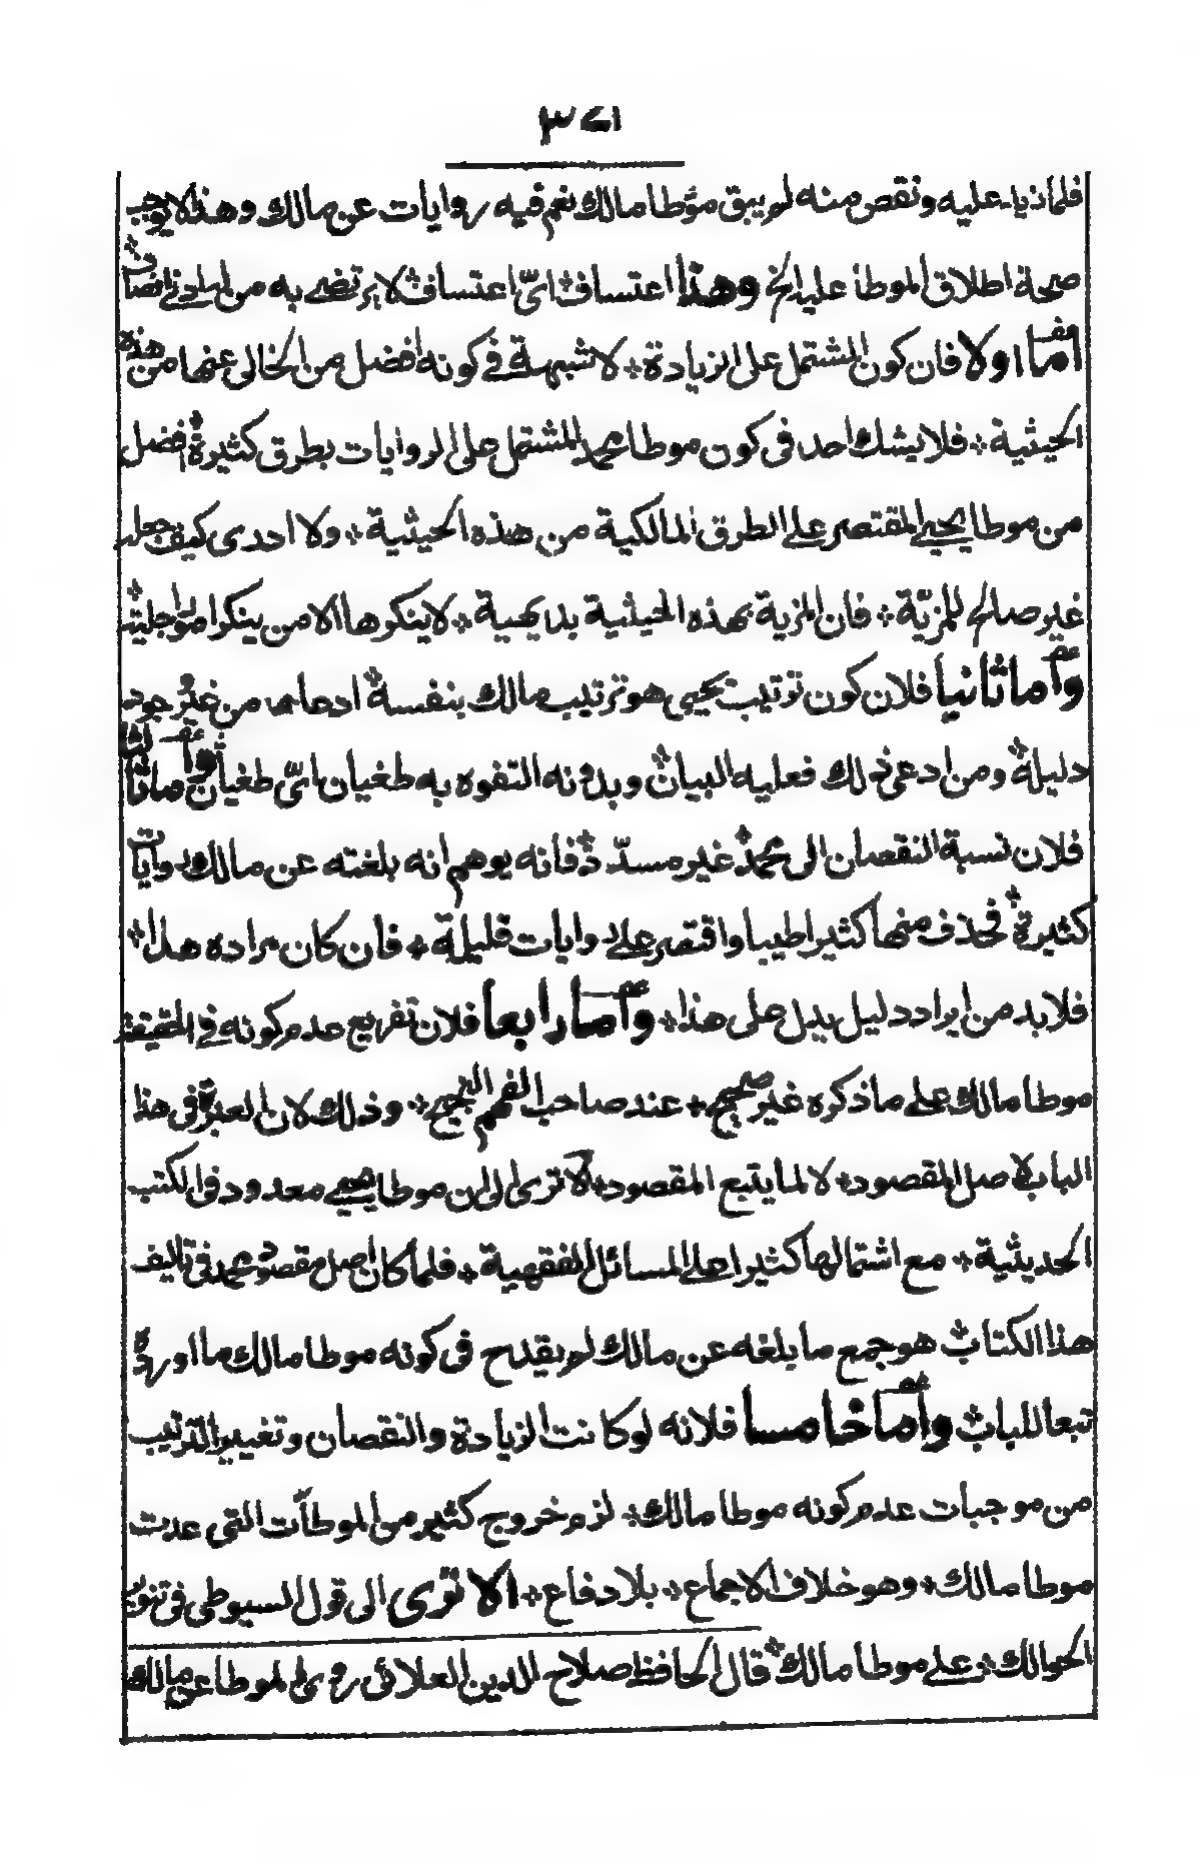 ٣٧١
فلما زيد عليه ونقص منه لم يبق مؤطا مالك نعم فيه روايات عن مالك وهذا لا يوجب
صحة اطلاق الموطأ عليه الخ وهذا اعتساف اىّ اعتساف لا يرتضى به من له ادنى انصاف
امّا اولا فان كون المشتمل على الزيادة لا شبهة فى كونه افضل من الخالى عنها من هذه
الحيثية فلا يشك احد فى كون موطا محمد المشتمل على الروايات بطرق كثيرة افضل
من موطا يحيى المقتصر على الطرق المالكية من هذه الحيثية ولا ادرى كيف جعله
غير صالح للمزيّة فان المزية بهذه الحيثية بديهية لا ينكرها الا من ينكر امورا جلية
وامّا ثانيا فلان كون ترتيب يحيى هو ترتيب مالك بنفسه ادعاء من غير وجود
دليله ومن ادعى ذلك فعليه البيان وبدونه التفوه به طغيان اىّ طغيان وامّا ثالثا
فلان نسبة النقصان الى محمد غير مسدّدة فانه يوهم انه بلغته عن مالك روايات
كثيرة فحذف منها كثيرا طيبا واقتصر على روايات قليلة فان كان مراده هذا
فلا بد من ايراد دليل يدل على هذا وامّا رابعا فلان تفريع عدم كونه فى الحقيقة
موطا مالك على ما ذكره غير صحيح عند صاحب الفهم النجيح وذلك لان العبرة فى هذا
الباب لاصل المقصود لا لما يتبع المقصود الا ترى الى ان موطا يحيى معدود فى الكتب
الحديثية مع اشتمالها كثيرا على المسائل الفقهية فلما كان اصل مقصود محمد فى تاليف
هذا الكتاب هو جمع ما بلغه عن مالك لم يقدح فى كونه موطا مالك ما اورده
تبعا للباب وامّا خامسا فلانه لو كانت الزيادة والنقصان وتغيير الترتيب
من موجبات عدم كونه موطا مالك لزم خروج كثير من الموطآت التى عدت
موطا مالك وهو خلاف الاجماع بلا دفاع الا ترى الى قول السيوطى فى تنوير
الحوالك وعلى موطا مالك قال الحافظ صلاح الدين العلائى روى الموطا عن مالك